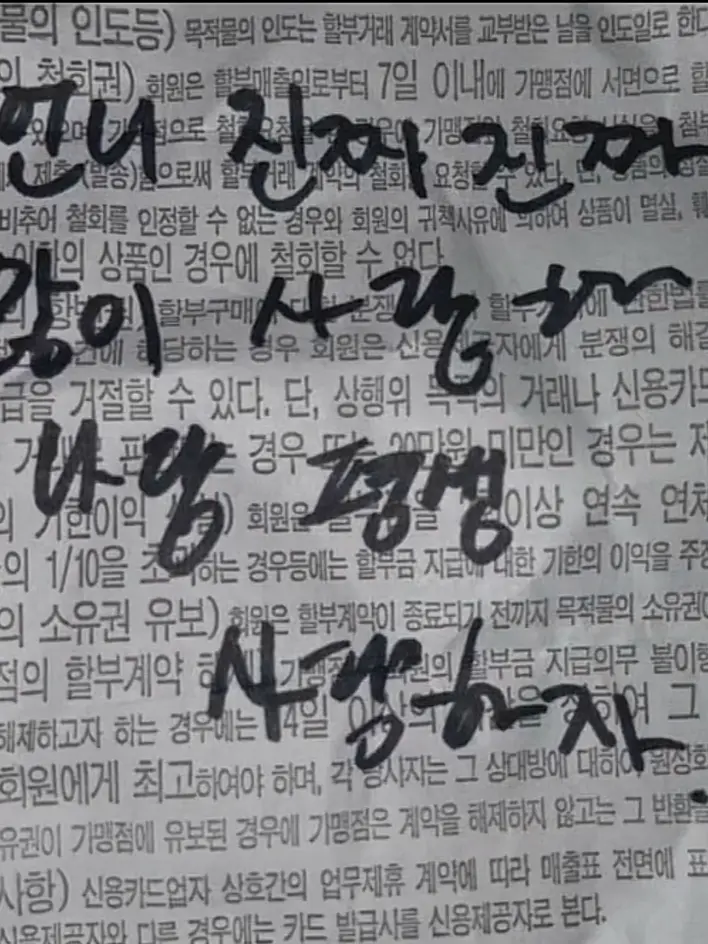 물의 인도등) 목적물의 인도는 할부거래 계약서를 교부받은 날을 인도일로 한다
의 철회권) 회원은 할부매출일로부터 7일 이내에 가맹점에 서면으로 할
언니 진짜 진짜
제출(발송)함으로써 할부거래 계약의 철회를 요청할 수 있다. 단,
비추어 철회를 인정할 수 없는 경우와 회원의 귀책사유에 의하여 상품이 멸실, 훼
이하의 상품인 경우에 철회할 수 없다.
많이 사랑하
해당하는 경우 회원은 신용제공자에게 분쟁의 해결
급을 거절할 수 있다. 단, 상행위 목적의 거래나 신용카드
경우 또는 20만원 미만인 경우는 제
나랑 평생
의 기한이익 상실) 회원은 이상 연속 연체
의 1/10을 초과하는 경우등에는 할부금 지급에 대한 기한의 이익을 주장
의 소유권 유보) 회원은 할부계약이 종료되기 전까지 목적물의 소유권이
점의 할부계약 해제) 가맹점은 회원의 할부금 지급의무 불이행
사랑하자.
해제하고자 하는 경우에는 14일 이상의 기간을 정하여 그
회원에게 최고하여야 하며, 각 당사자는 그 상대방에 대하여 원상회
유권이 가맹점에 유보된 경우에 가맹점은 계약을 해제하지 않고는 그 반환을
사항) 신용카드업자 상호간의 업무제휴 계약에 따라 매출표 전면에 표
신용제공자와 다른 경우에는 카드 발급사를 신용제공자로 본다.